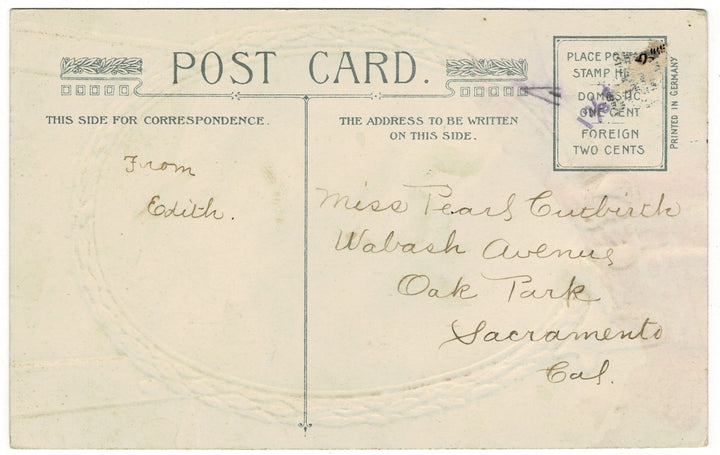 POST CARD.
THIS SIDE FOR CORRESPONDENCE.
THE ADDRESS TO BE WRITTEN
ON THIS SIDE.
PLACE
STAMP
DOMESTIC
ONE CENT
FOREIGN
TWO CENTS
PRINTED IN GERMANY
From
Edith.
Miss Pearl Cutbirth
Wabash Avenue
Oak Park
Sacramento
Cal.